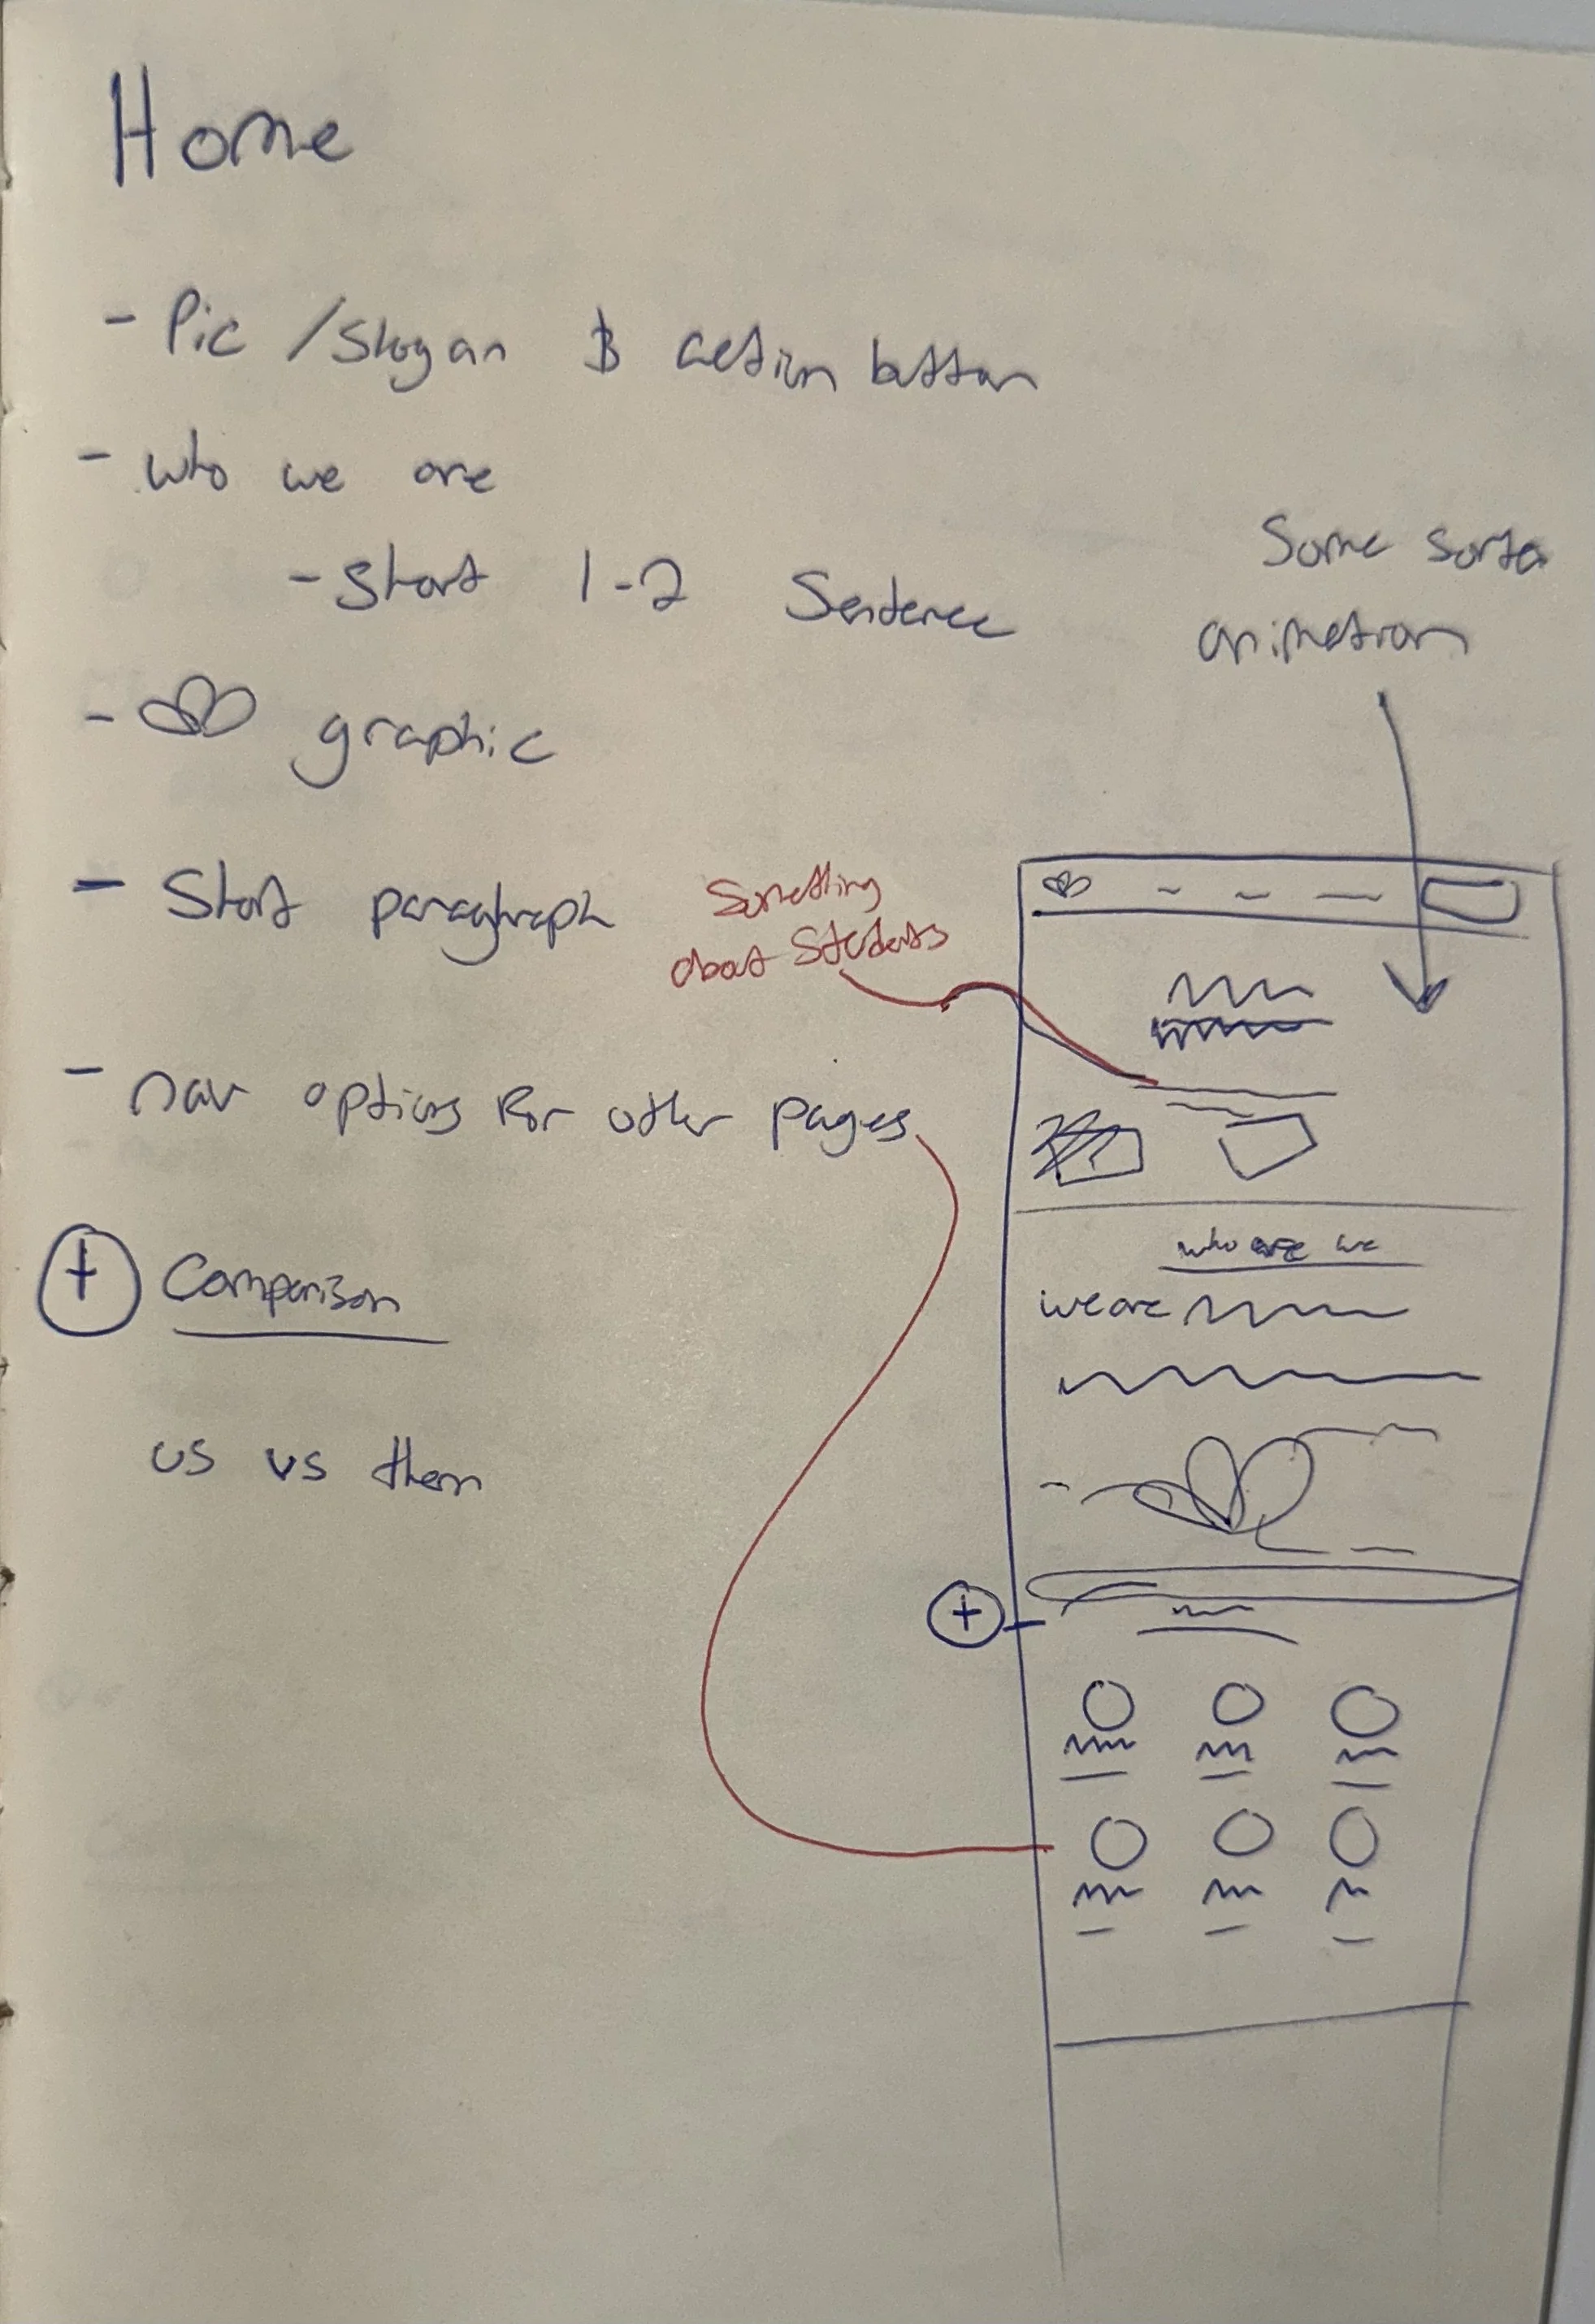 Home
- Pic / Slogan & action button
- who we are
- Short 1-2 Sentence
Some sorta
animation
- graphic
- Short paragraph
Something
about Students
- nav options for other pages
who are we
we are
+ Comparison
us vs them
+